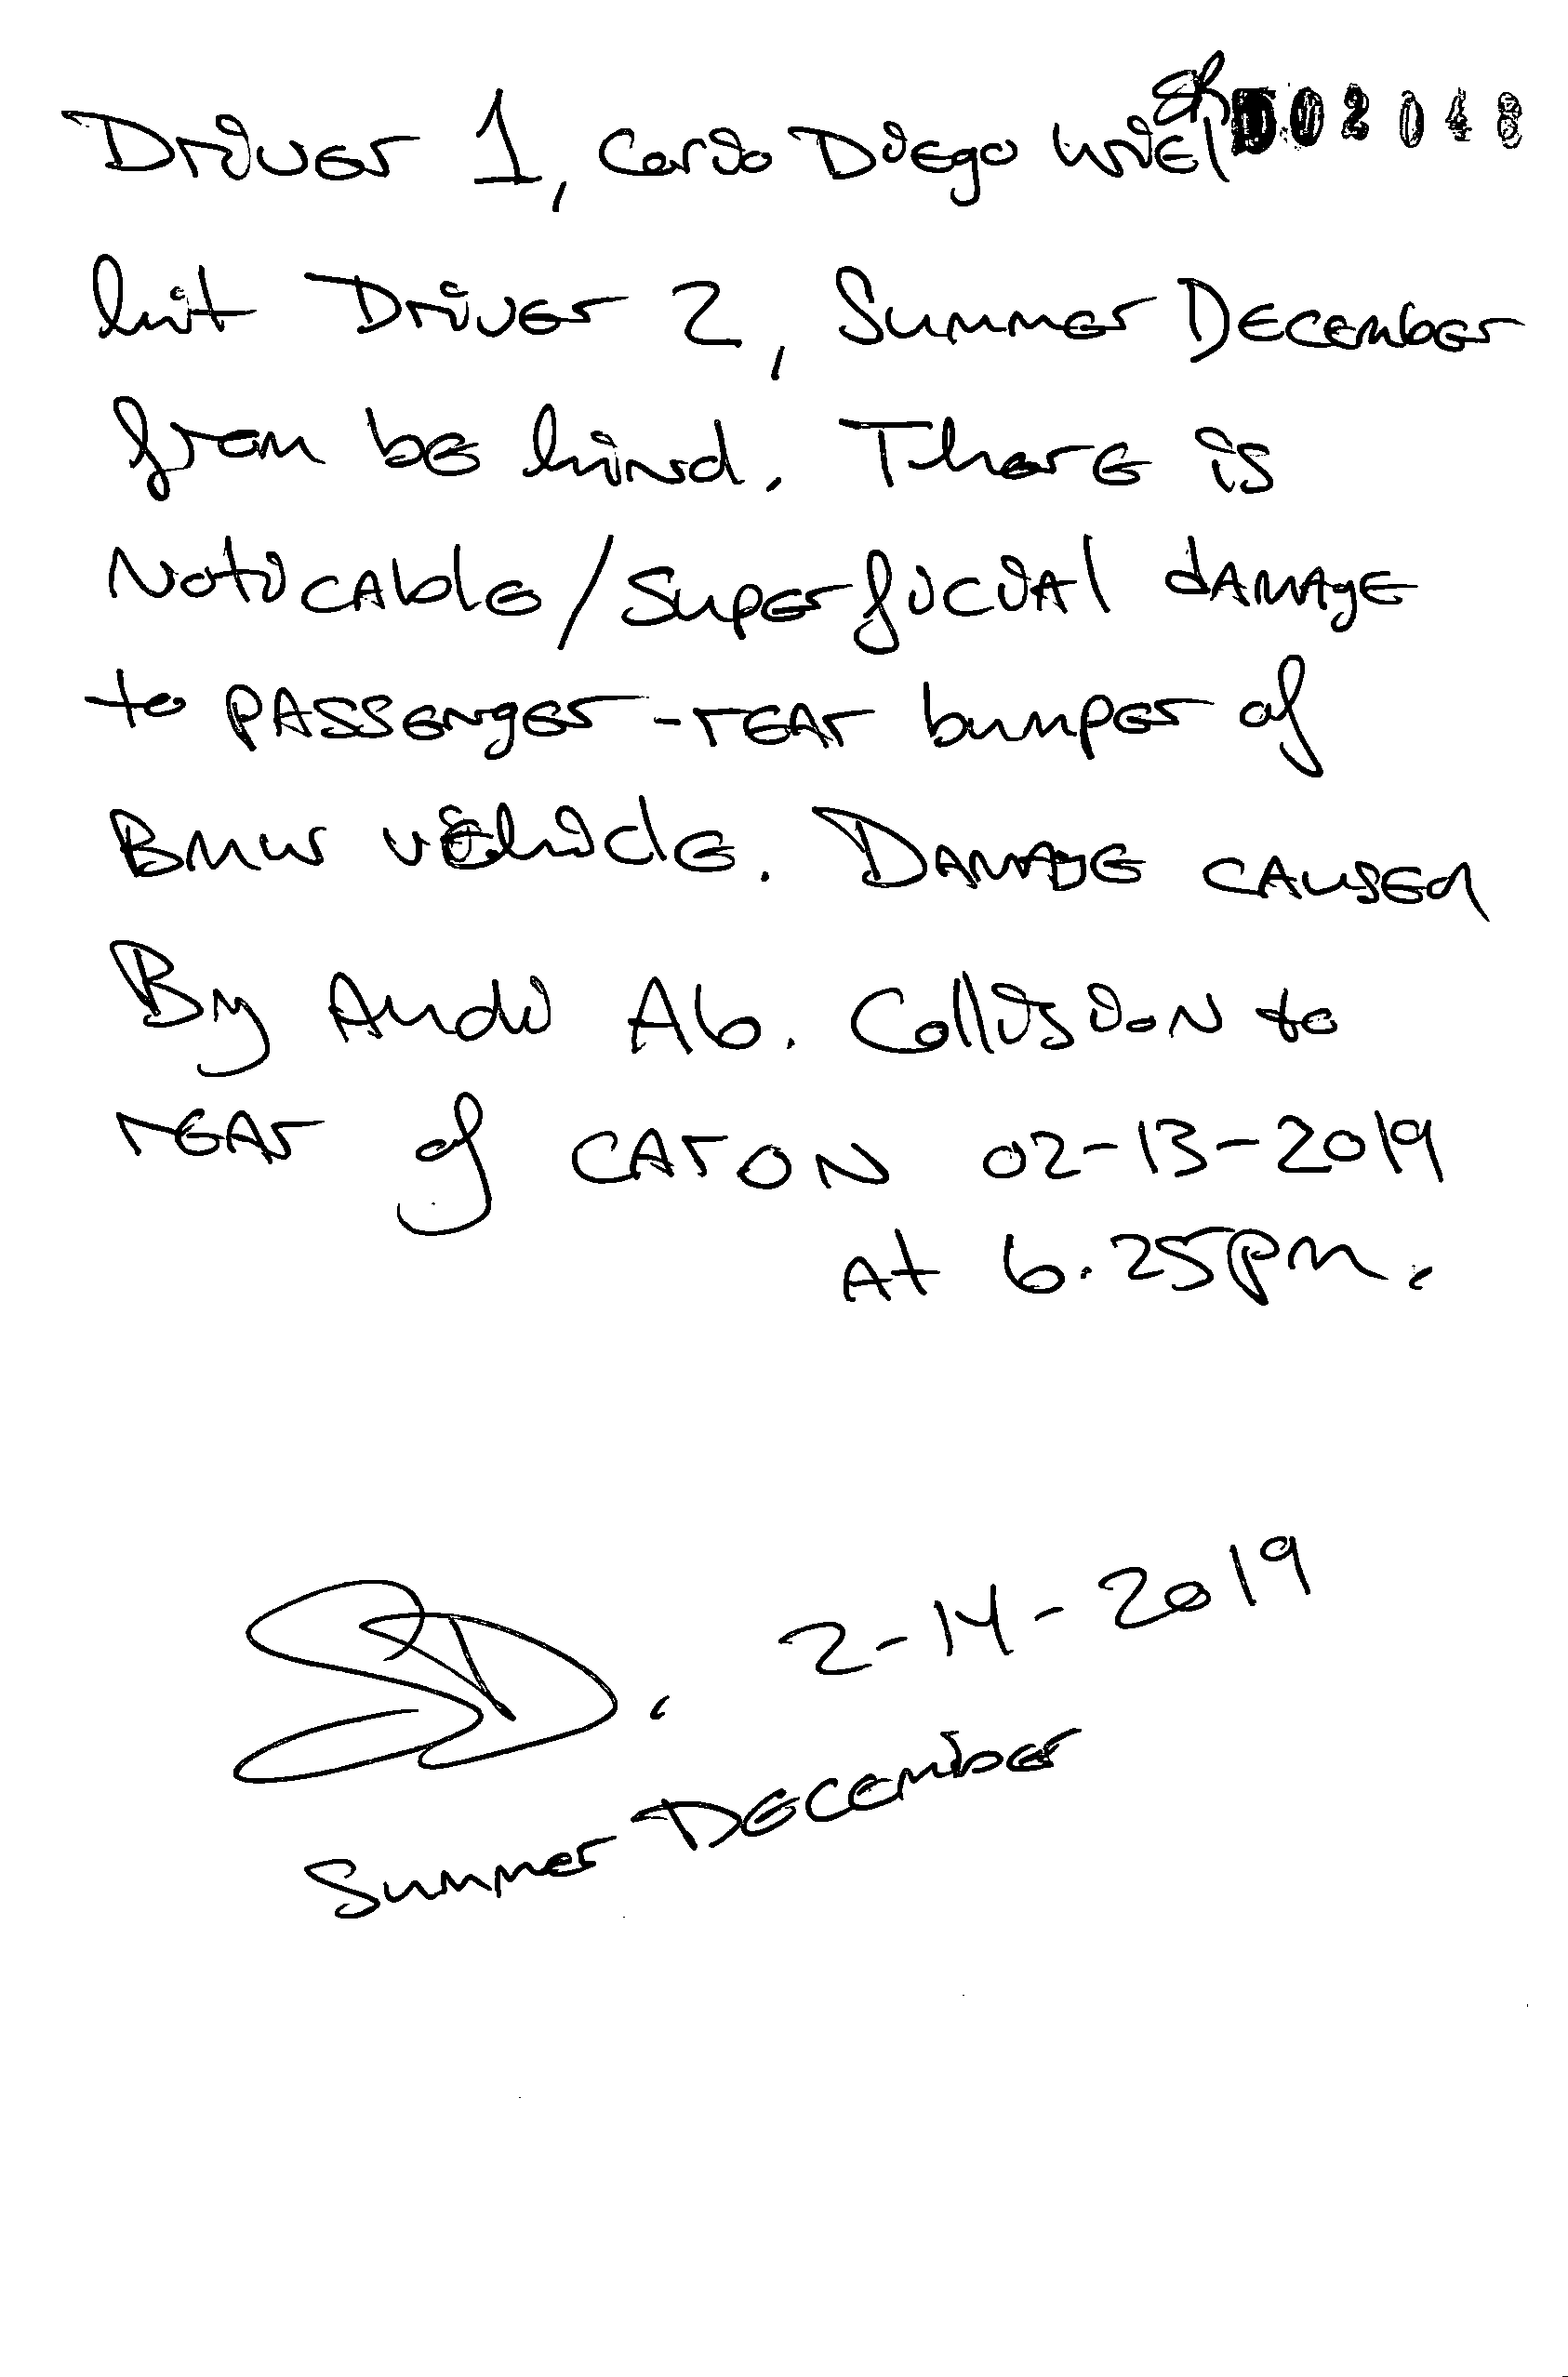 Driver 1, Cerio Diego Uriel 002048
hit Driver 2, Summer December
from be hind. There is
Noticable/Superficial damage
to passenger-rear bumper of
Bmw vehicle. Damage caused
By Audi A6. Collision to
rear of car on 02-13-2019
At 6.25pm.
SD. 2-14-2019
Summer December